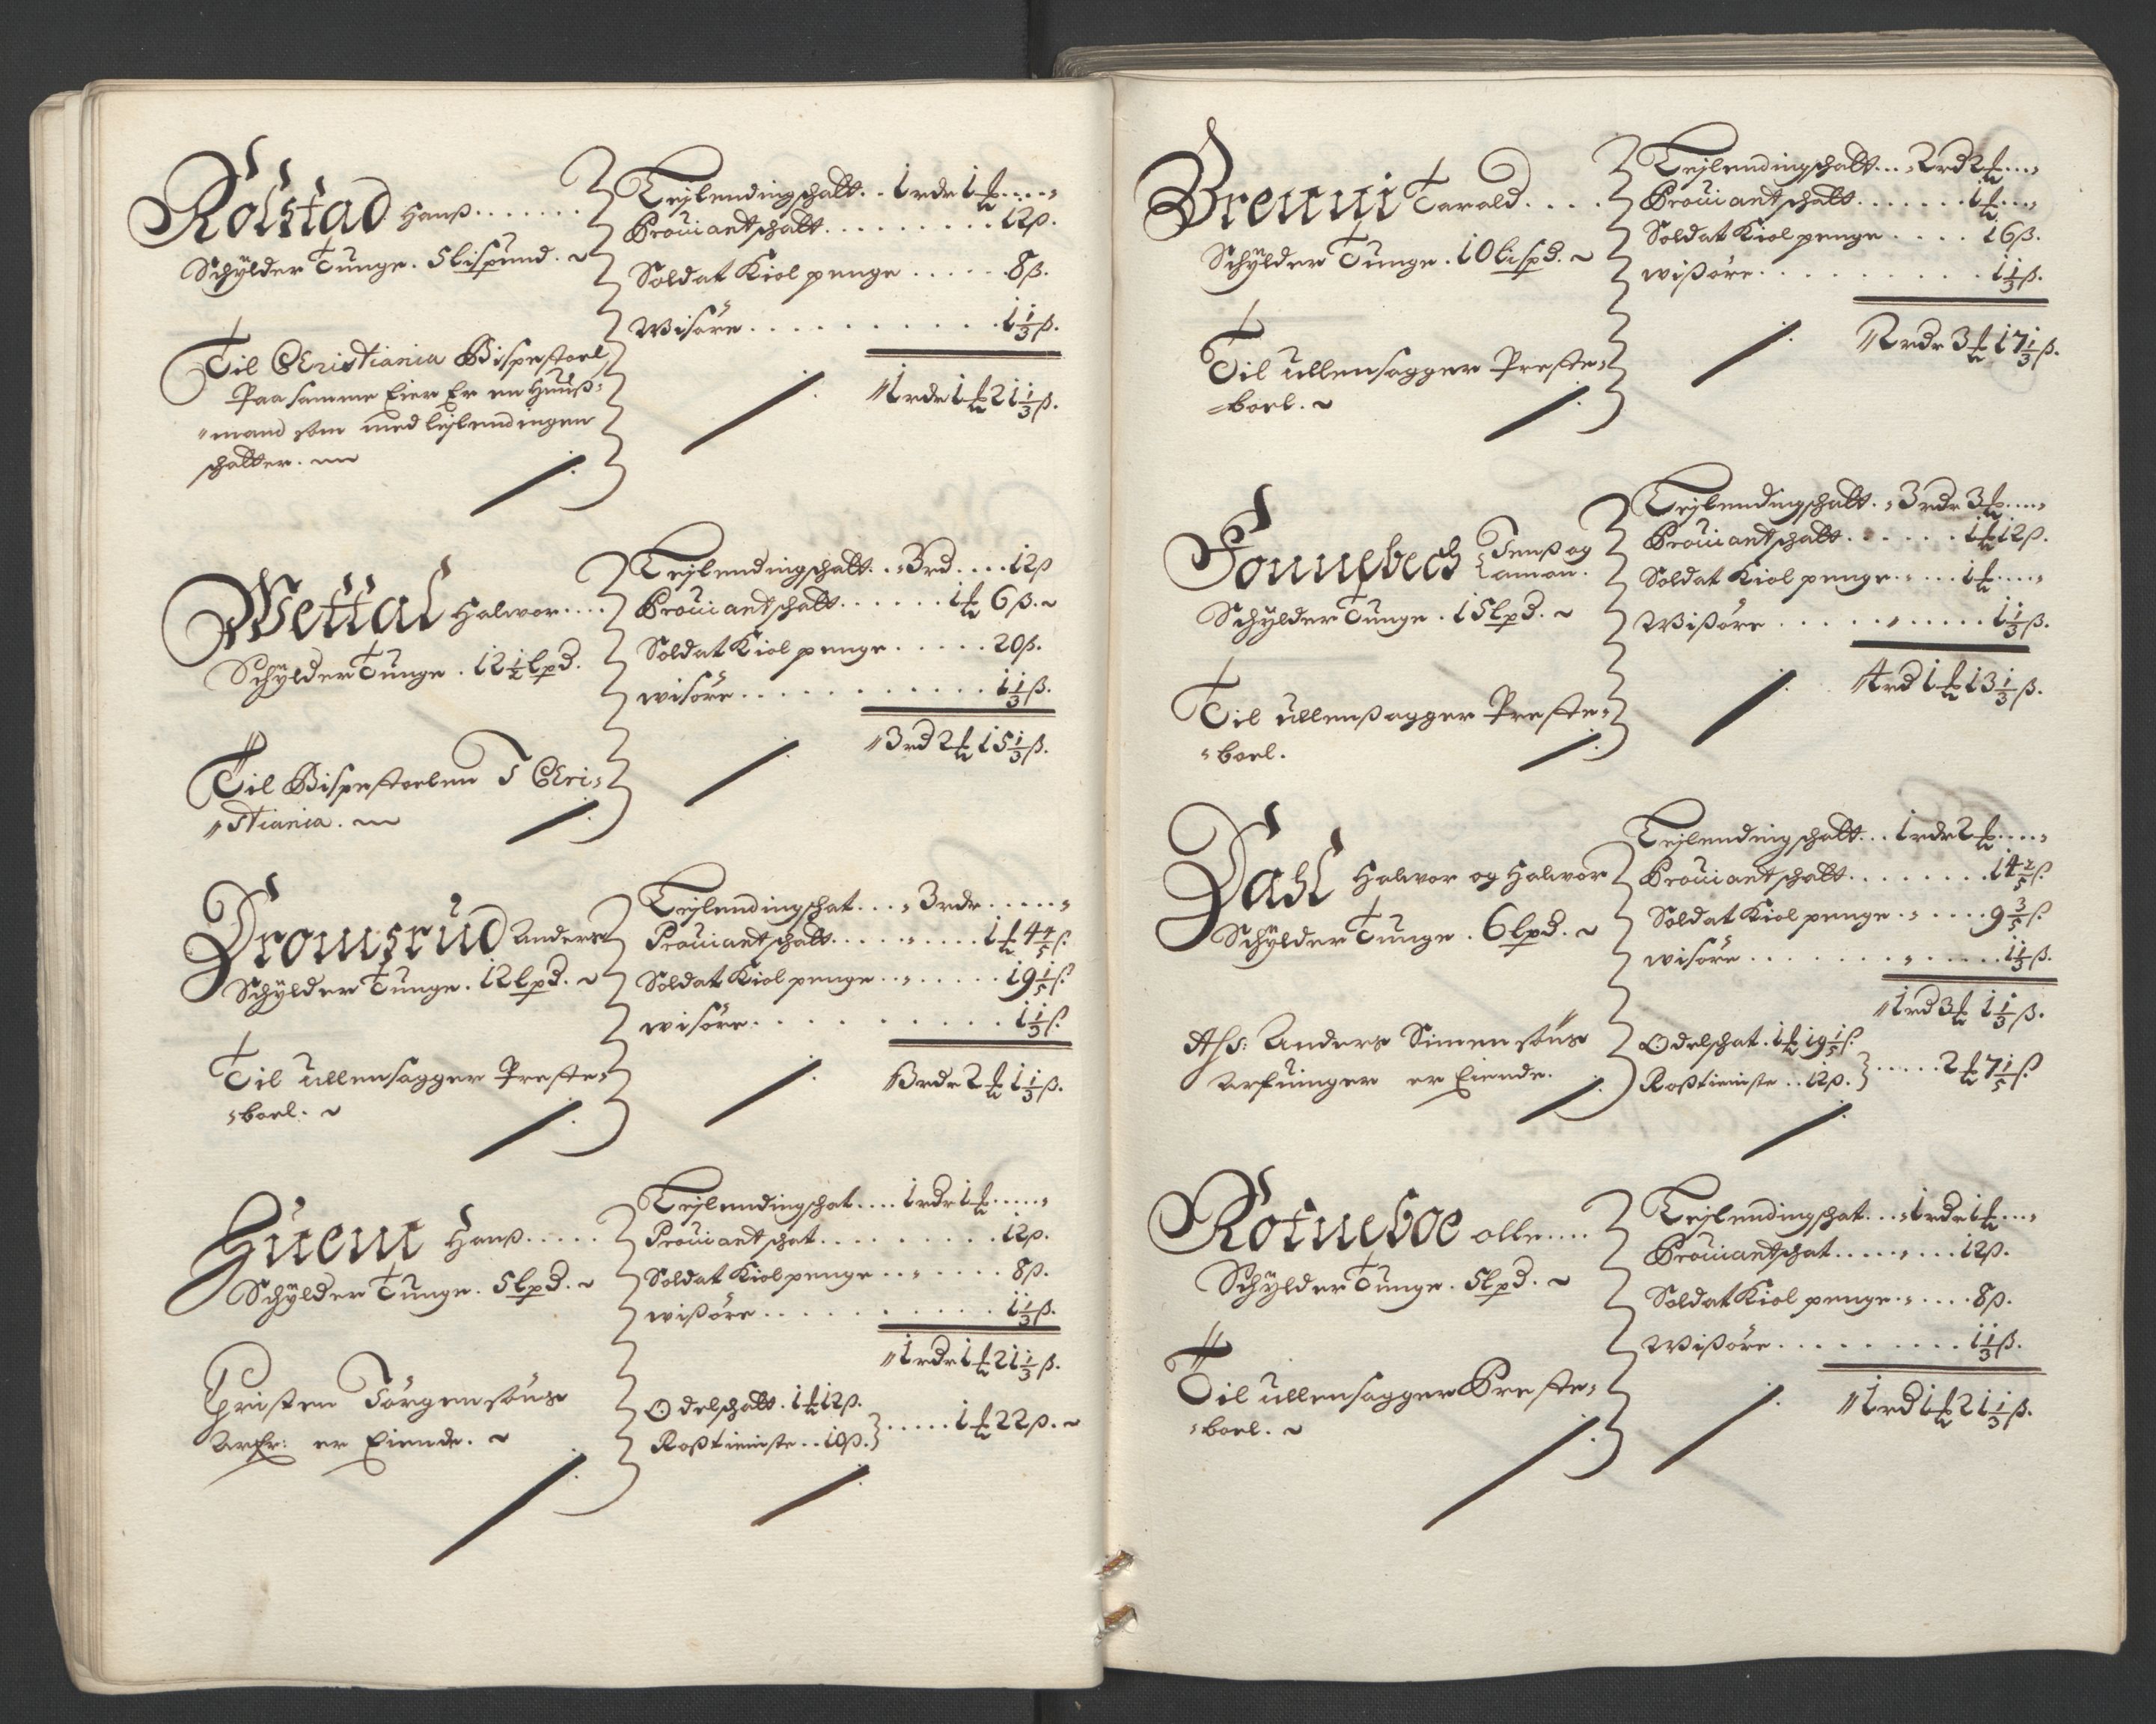 Rolstad Hanß.......
Schÿlder Tunge. 5 lispund.
Til Christiania Bispestoel
Paa samme Eier Er en Huuß=
=mand som med leÿlendingen
schatter.
Leÿlendingschatt.. 1 rdr 1 ℔....
Prouiantschatt......... 12 ß.
Soldat Kiol penge...... 8 ß.
Wisöre........... 1 1/3 ß.
1 rdr 1 ℔ 21 1/3 ß.
Wettal Halvor....
Schÿlder Tunge. 12 1/2 lpd.
Til Bispestoelen I Chri=
=stiania.
Leÿlendingschatt.. 3 rd.... 12 ß
Prouiantschatt...... 1 ℔ 6 ß.
Soldat Kiol penge..... 20 ß.
wisöre............ 1 1/3 ß.
3 rd 2 ℔ 15 1/3 ß.
Dromsrud Anders
Schÿlder Tunge. 12 lpd.
Til Ullensagger Preste=
=boel.
Leÿlendingschat... 3 rdr.....
Prouiantschatt........ 1 ℔ 4 4/5 ß.
Soldat Kiol penge....... 19 1/5 ß.
wisöre.......... 1 1/3 ß.
3 rdr 2 ℔ 1 1/3 ß.
Huem Hanß.....
Schÿlder Tunge. 5 lpd.
Christen Jörgensöns
Arfr: er Eiende.
Leÿlendingschat.... 1 rdr 1 ℔.....
Prouiantschat......... 12 ß.
Soldat Kiol penge...... 8 ß.
wißöre.......... 1 1/3 ß.
1 rdr 1 ℔ 21 1/3 ß.
Odelschatt. 1 ℔ 12 ß.
Roßtieniste.. 10 ß. ..... 1 ℔ 22 ß.
Brenni Tarald....
Schÿlder Tunge. 10 lispd.
Til Ullensagger Preste=
=boel.
Leÿlendingschatt... 2 rd 2 ℔...
Prouiantschatt....... 1 ℔...
Soldat Kiol penge.... 16 ß.
wißöre.......... 1 1/3 ß.
2 rdr 3 ℔ 17 1/3 ß.
Fonnebech Jenß og
Amon.
Schÿlder Tunge. 15 lpd.
Til Ullenßagger Preste=
=boel.
Leÿlendingschatt. 3 rdr 3 ℔....
Prouiantschatt...... 1 ℔ 12 ß.
Soldat Kiol penge..... 1 ℔....
Wißöre.......... 1 1/3 ß.
4 rd 1 ℔ 13 1/3 ß.
Dahl Halvor og Halvor
Schÿlder Tunge. 6 lpd.
Ahs: Anders Simensöns
Arfuinger er Eiende.
Leÿlendingschatt... 1 rdr 2 ℔....
Prouiantschatt........ 14 2/5 ß.
Soldat Kiol penge...... 9 3/5 ß.
wisöre............ 1 1/3 ß.
1 rd 3 ℔ 1 1/3 ß.
Odelschat. 1 ℔ 19 1/5 ß.
Roßtieniste.. 12 ß. ..... 2 ℔ 7 1/5 ß.
Rotneboe olle....
Schÿlder Tunge. 5 lpd.
Til Ullensagger Preste=
=boel.
Leÿlendingschat... 1 rdr 1 ℔...
Prouiantschat........ 12 ß.
Soldat Kiol penge..... 8 ß.
Wißöre......... 1 1/3 ß.
1 rd 1 ℔ 21 1/3 ß.